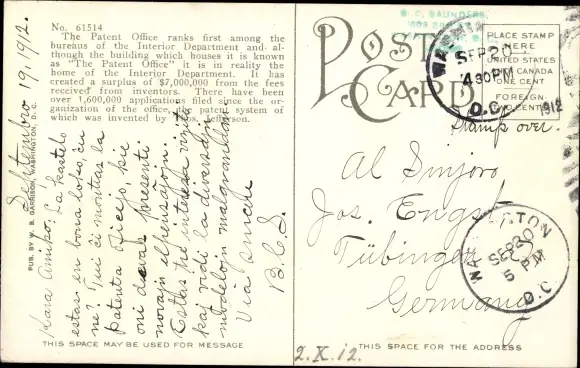 No. 61514
The Patent Office ranks first among the
bureaus of the Interior Department and al-
though the building which houses it is known
as "The Patent Office" it is in reality the
home of the Interior Department. It has
created a surplus of $7,000,000 from the fees
received from inventors. There have been
over 1,600,000 applications filed since the or-
ganization of the office, the patent system of
which was invented by Thos. Jefferson.
PUB. BY W. B. GARRISON, WASHINGTON, D. C.
Septembro 19, 1912.
Kara Amiko: La kastelo
estas en bona loko, ĉu
ne? Tiu ĉi montras la
patenta oficejo, kie
oni devas presenti
novajn elpensojn.
Estas tre interesa viziti
kaj vidi la diversajn
modelojn malgrandajn
Via sincere
B.C.S.
THIS SPACE MAY BE USED FOR MESSAGE
B. C. SAUNDERS,
POST CARD
PLACE STAMP
HERE
UNITED STATES
AND CANADA
ONE CENT
FOREIGN
TWO CENTS
SEP 20
4 30 PM
D.C.
1912
Stamp over.
Al Sinjoro
Jos. Engst
Tübingen
Germany
WASHINGTON
SEP 20
5 PM
D.C.
2. X. 12.
THIS SPACE FOR THE ADDRESS